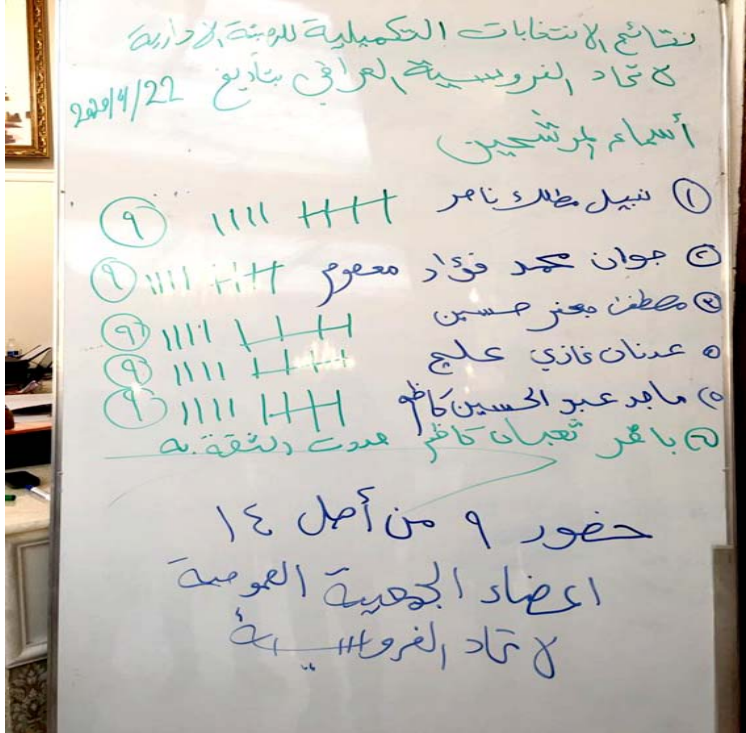 نتائج الانتخابات التكميلية للهيئة الادارية
لاتحاد الفروسية العراقي بتاريخ 22/9/2020
أسماء المرشحين
١ نبيل مطلك ناصر ٩
٢ جوان محمد فؤاد معصوم ٩
٣ مصطفى معن حسين ٩
عدنان غازي عليج ٩
٥ ماجد عبد الحسين كاظم ٩
٦ باقر ثعبان كاظم جددت الثقة به
حضور ٩ من أصل ١٤
اعضاء الجمعية العمومية
لاتحاد الفروسية